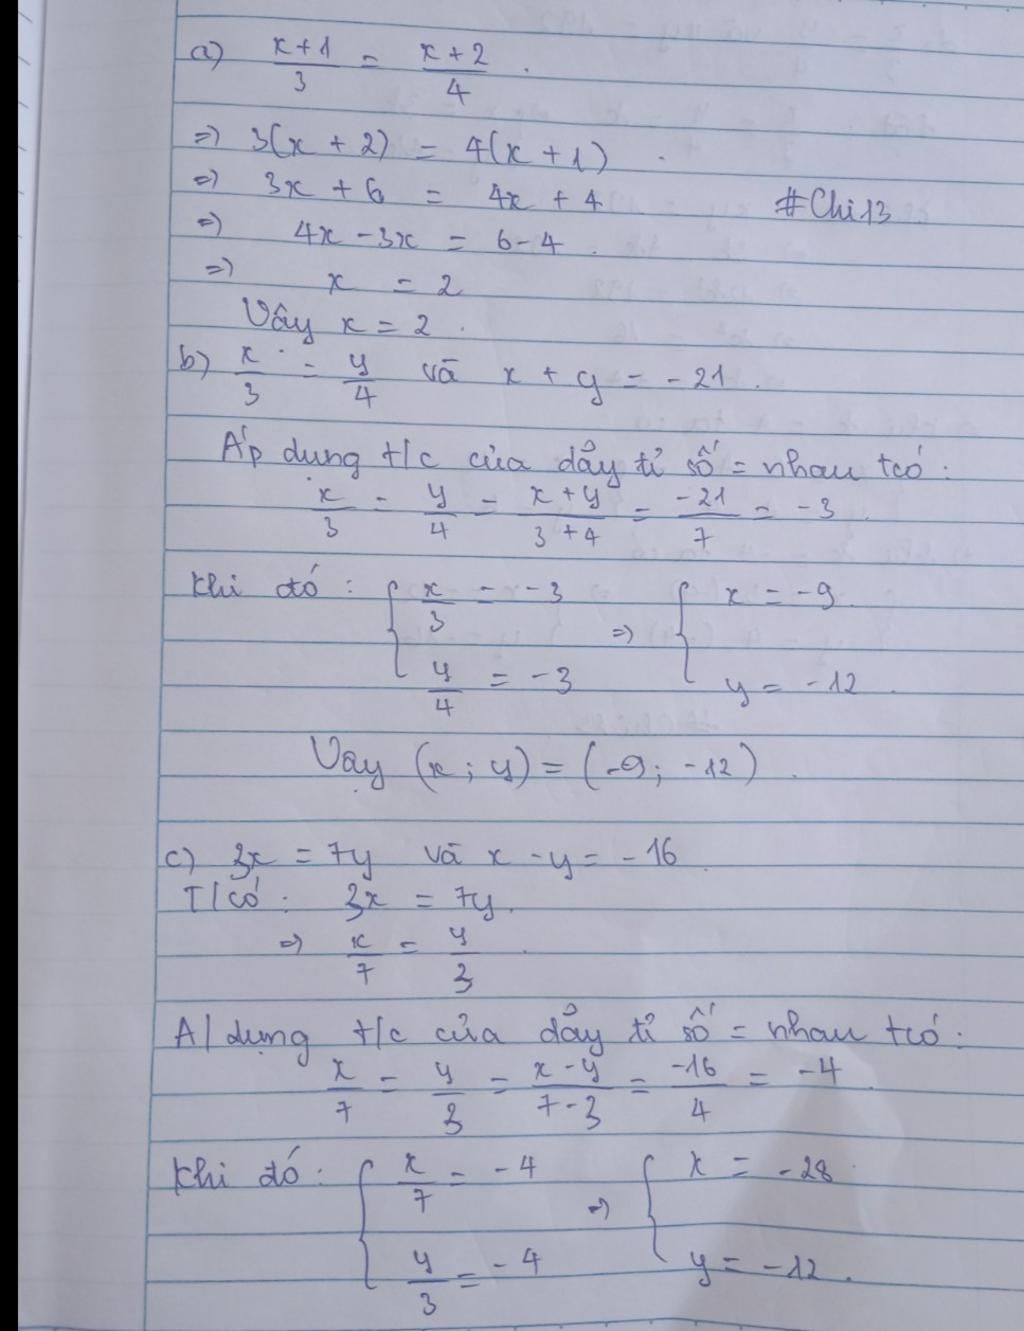 a) x+1/3 = x+2/4 .
=> 3(x + 2) = 4(x + 1) .
=> 3x + 6 = 4x + 4
#Chi13
=> 4x - 3x = 6 - 4 .
=> x = 2
Vây x = 2 .
b) x/3 = y/4 và x + y = -21 .
Áp dung t/c của dẫy tỉ số = nhau tcó :
x/3 = y/4 = x+y/3+4 = -21/7 = -3 .
Khi đó : { x/3 = -3 => { x = -9 .
y/4 = -3 y = -12 .
Vạy (x ; y) = (-9; -12) .
c) 3x = 7y và x - y = -16 .
T/có : 3x = 7y .
=> x/7 = y/3 .
A/dụng t/c của dẫy tỉ số = nhau tcó :
x/7 = y/3 = x-y/7-3 = -16/4 = -4 .
Khi đó : { x/7 = -4 => { x = -28 .
y/3 = -4 y = -12 .